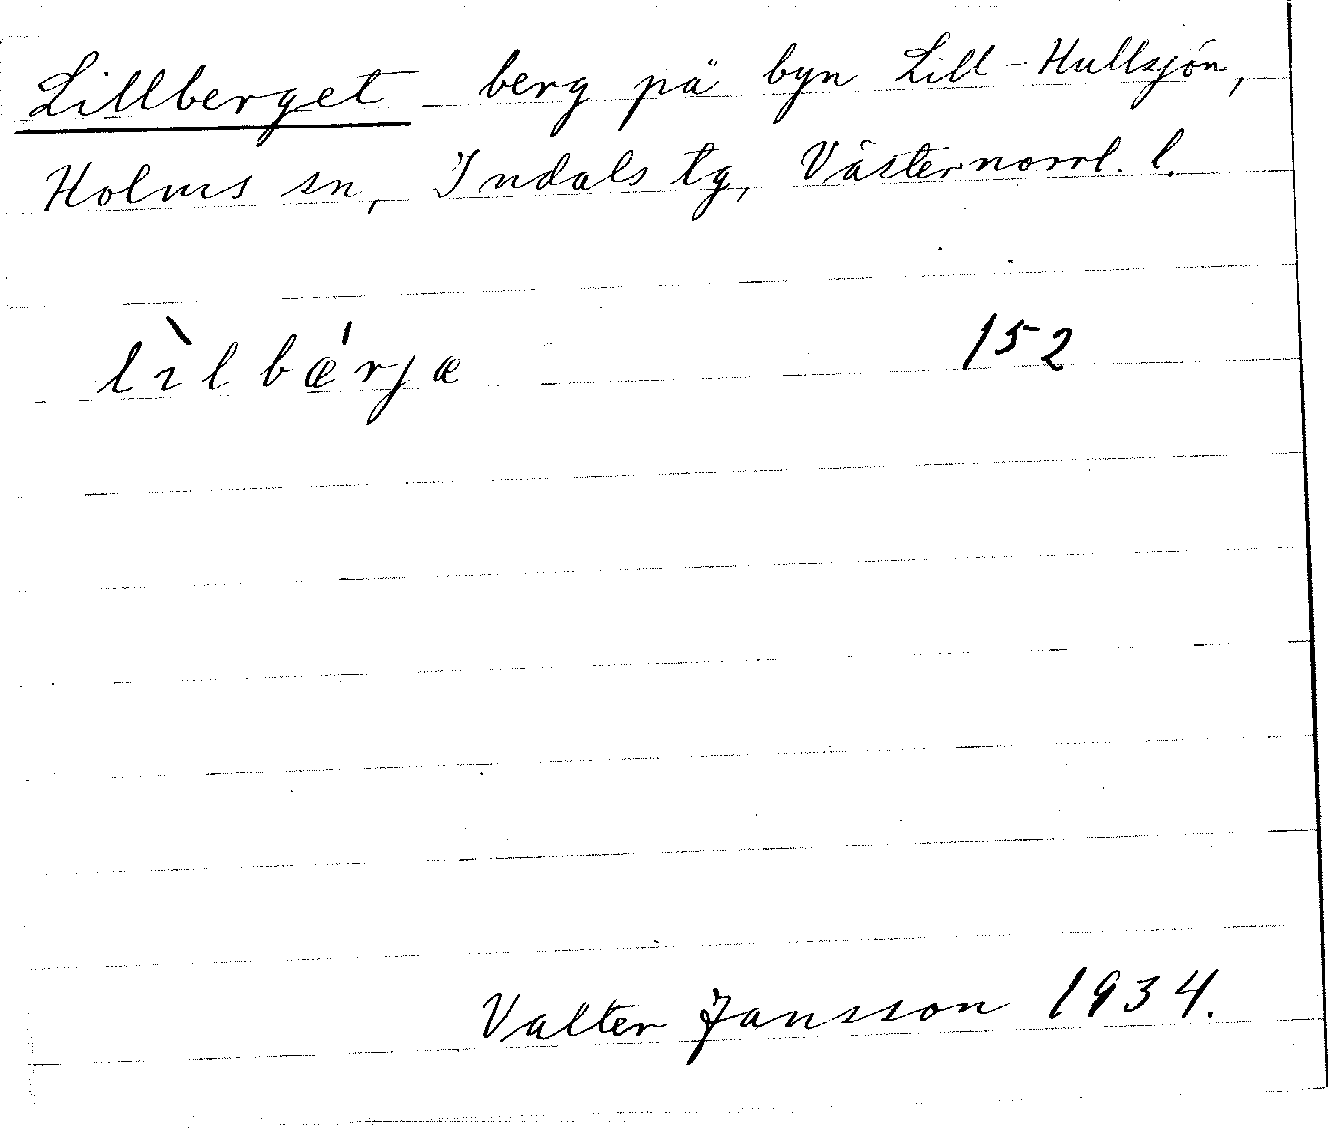 Lillberget berg på byn Lill-Hullsjön,
Holms sn, Indals tg, Västernorrl. l.
lìlbǽrjæ 152
Valter Jansson 1934.